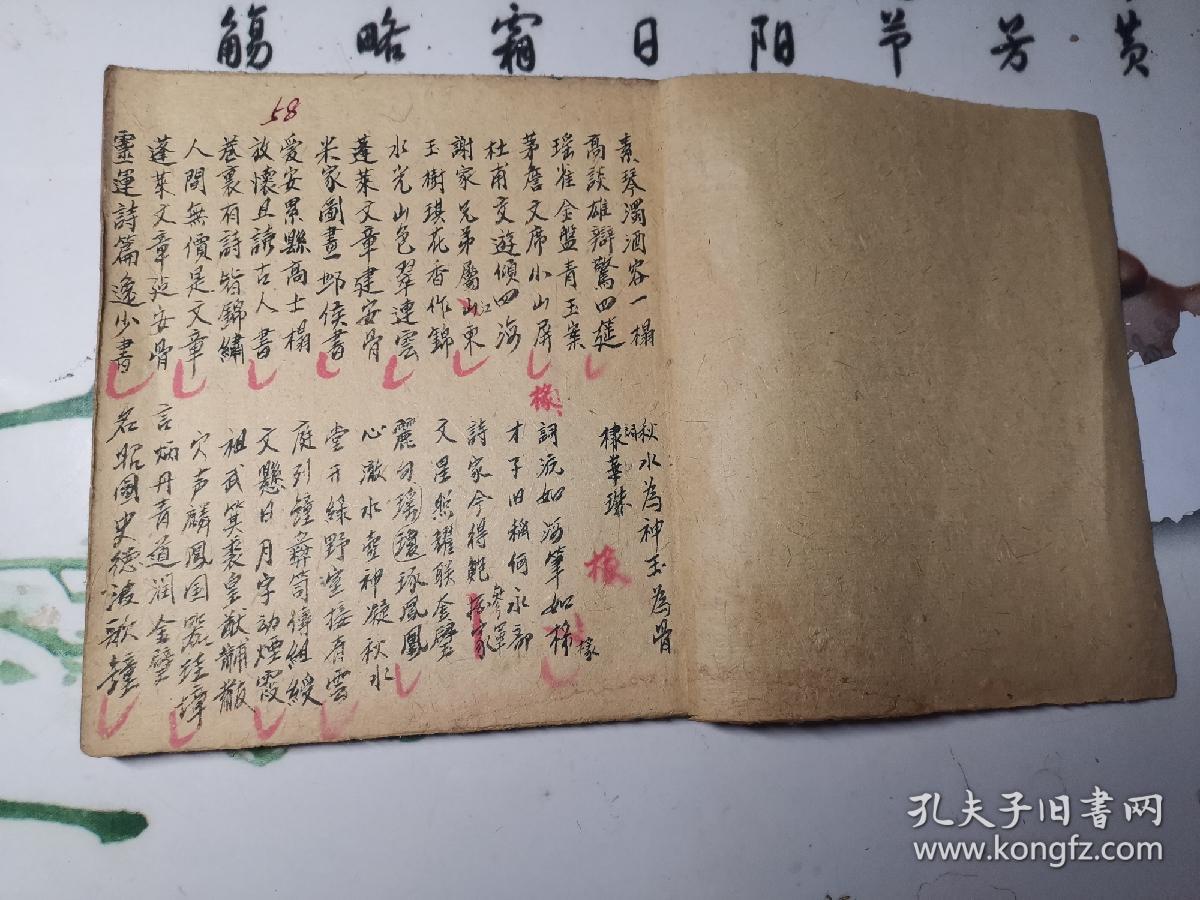 觴 略 霜 日 阳 节 芳 黄
58
素琴濁酒容一榻
高談雄辯驚四筵
瑶雀金盤青玉案
茅詹文席小山屏
杜甫交遊傾四海
謝家兄弟屬山東
江
玉樹琪花香作錦
水光山色翠連雲
蓬萊文章建安骨
米家圖畫邺侯書
愛安累縣高士榻
放懷且讀古人書
巷裏有詩皆錦繡
人間無價是文章
蓬萊文章建安骨
靈運詩篇逸少書
秋水為神玉為骨
詞
棣華
椽
詞流如海筆如椽
椽
才子旧稱何水部
詩家今得鮑參軍
文星照耀联金璧
麗句瑶瓊琢鳳凰
心澈水壺神凝秋水
堂开緑野室接春雲
庭列鐘彝笥傳組綬
文懸日月字动煙霞
祖武箕裘皇猷黼黻
穴声麟鳳国器珪璋
言炳丹青道润金璧
名昭國史德波歌鐘
椽
孔夫子旧书网
www.kongfz.com